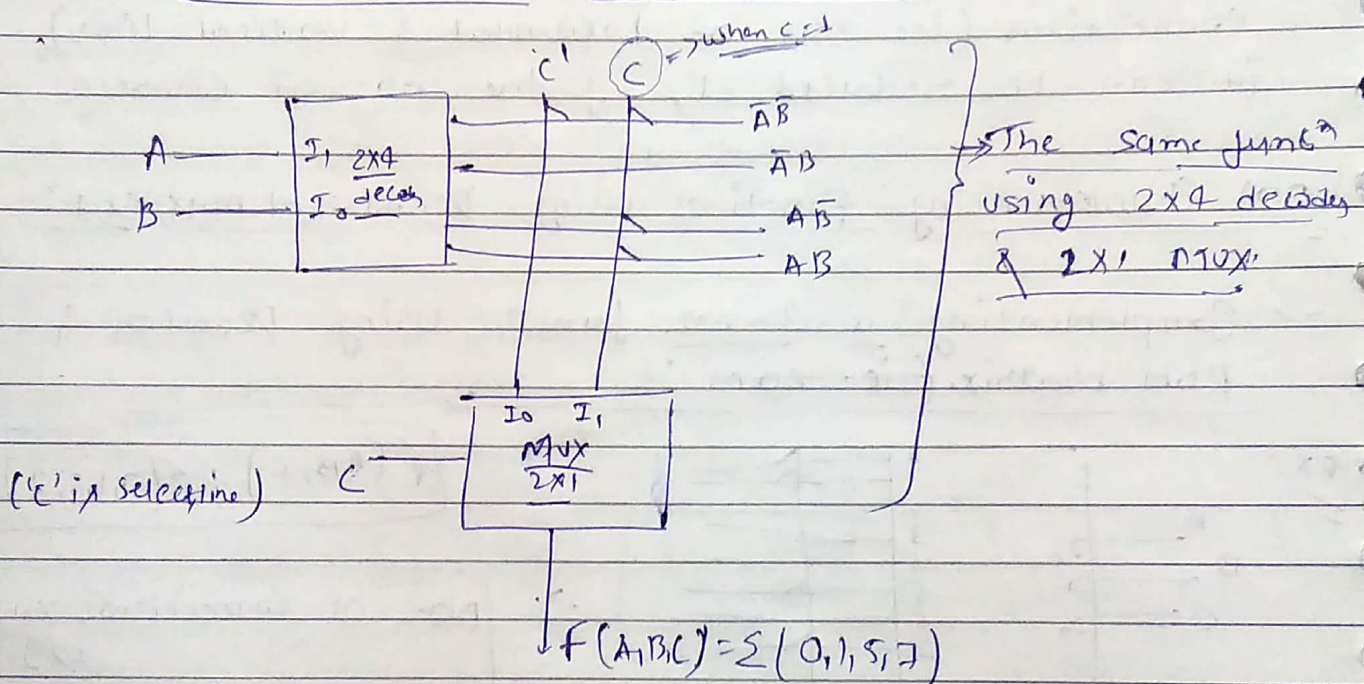 C' C => when c=1
A I1 2x4 ĀB̄
decoder ĀB
B I0 AB̄
AB
→ The same functⁿ
using 2x4 decoder
& 2x1 MUX.
I0 I1
MUX
2x1
('c' is selectline) C
f(A,B,C) = Σ(0,1,5,7)